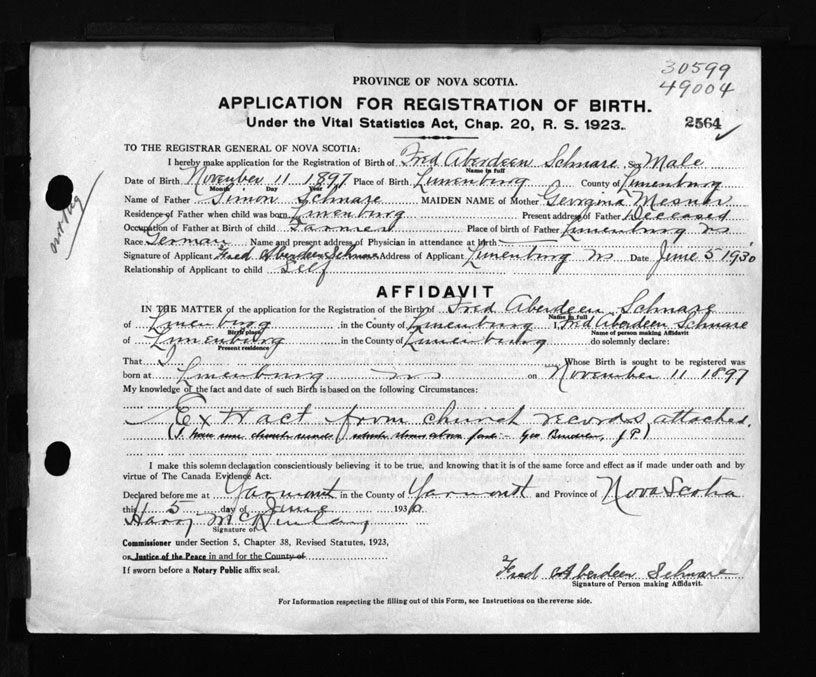 30599
49004
PROVINCE OF NOVA SCOTIA.
APPLICATION FOR REGISTRATION OF BIRTH.
Under the Vital Statistics Act, Chap. 20, R. S. 1923.
2564
TO THE REGISTRAR GENERAL OF NOVA SCOTIA:
I hereby make application for the Registration of Birth of Fred Aberdeen Schnare Sex Male
Name in full
Date of Birth November 11 1897 Place of Birth Lunenburg County of Lunenburg
Month Day Year
Name of Father Simon Schnare MAIDEN NAME of Mother Georgina
Residence of Father when child was born Lunenburg Present address of Father Deceased
Occupation of Father at Birth of child Farmer Place of birth of Father Lunenburg NS
Race German Name and present address of Physician in attendance at birth
Signature of Applicant Fred Aberdeen Schnare Address of Applicant Lunenburg NS Date June 5 1930
Relationship of Applicant to child Self
AFFIDAVIT
IN THE MATTER of the application for the Registration of the Birth of Fred Aberdeen Schnare
Name in full
of Lunenburg in the County of Lunenburg I, Fred Aberdeen Schnare
Birth place Name of person making Affidavit
of Lunenburg in the County of Lunenburg do solemnly declare:
Present residence
That I Whose Birth is sought to be registered was
born at Lunenburg NS on November 11 1897
My knowledge of the fact and date of such Birth is based on the following Circumstances:
Extract from church records attached.
(I have seen church records which show above facts - Geo J.P.)
I make this solemn declaration conscientiously believing it to be true, and knowing that it is of the same force and effect as if made under oath and by
virtue of The Canada Evidence Act.
Declared before me at Yarmouth in the County of Yarmouth and Province of Nova Scotia
this 5 day of June 1930
Harry McKinlay
Signature of
Commissioner under Section 5, Chapter 38, Revised Statutes, 1923,
or Justice of the Peace in and for the County of
If sworn before a Notary Public affix seal.
Fred Aberdeen Schnare
Signature of Person making Affidavit.
For Information respecting the filling out of this Form, see Instructions on the reverse side.